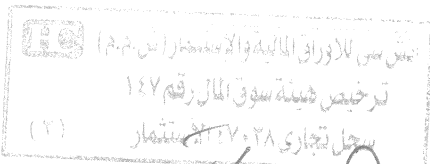 إتش سى للأوراق المالية والاستثمار (ش.م.م) HC
ترخيص هيئة سوق المال رقم ١٤٧
سجل تجارى الاستثمار
(٢)